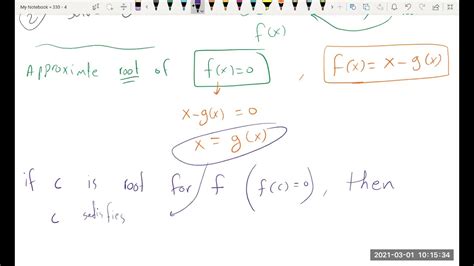 My Notebook > 333 - 4
2
f(x)
Approximate root of f(x)=0 , f(x) = x - g(x)
x-g(x) = 0
x = g(x)
if c is root for f (f(c)=0), then
c satisfies
2021-03-01 10:15:34